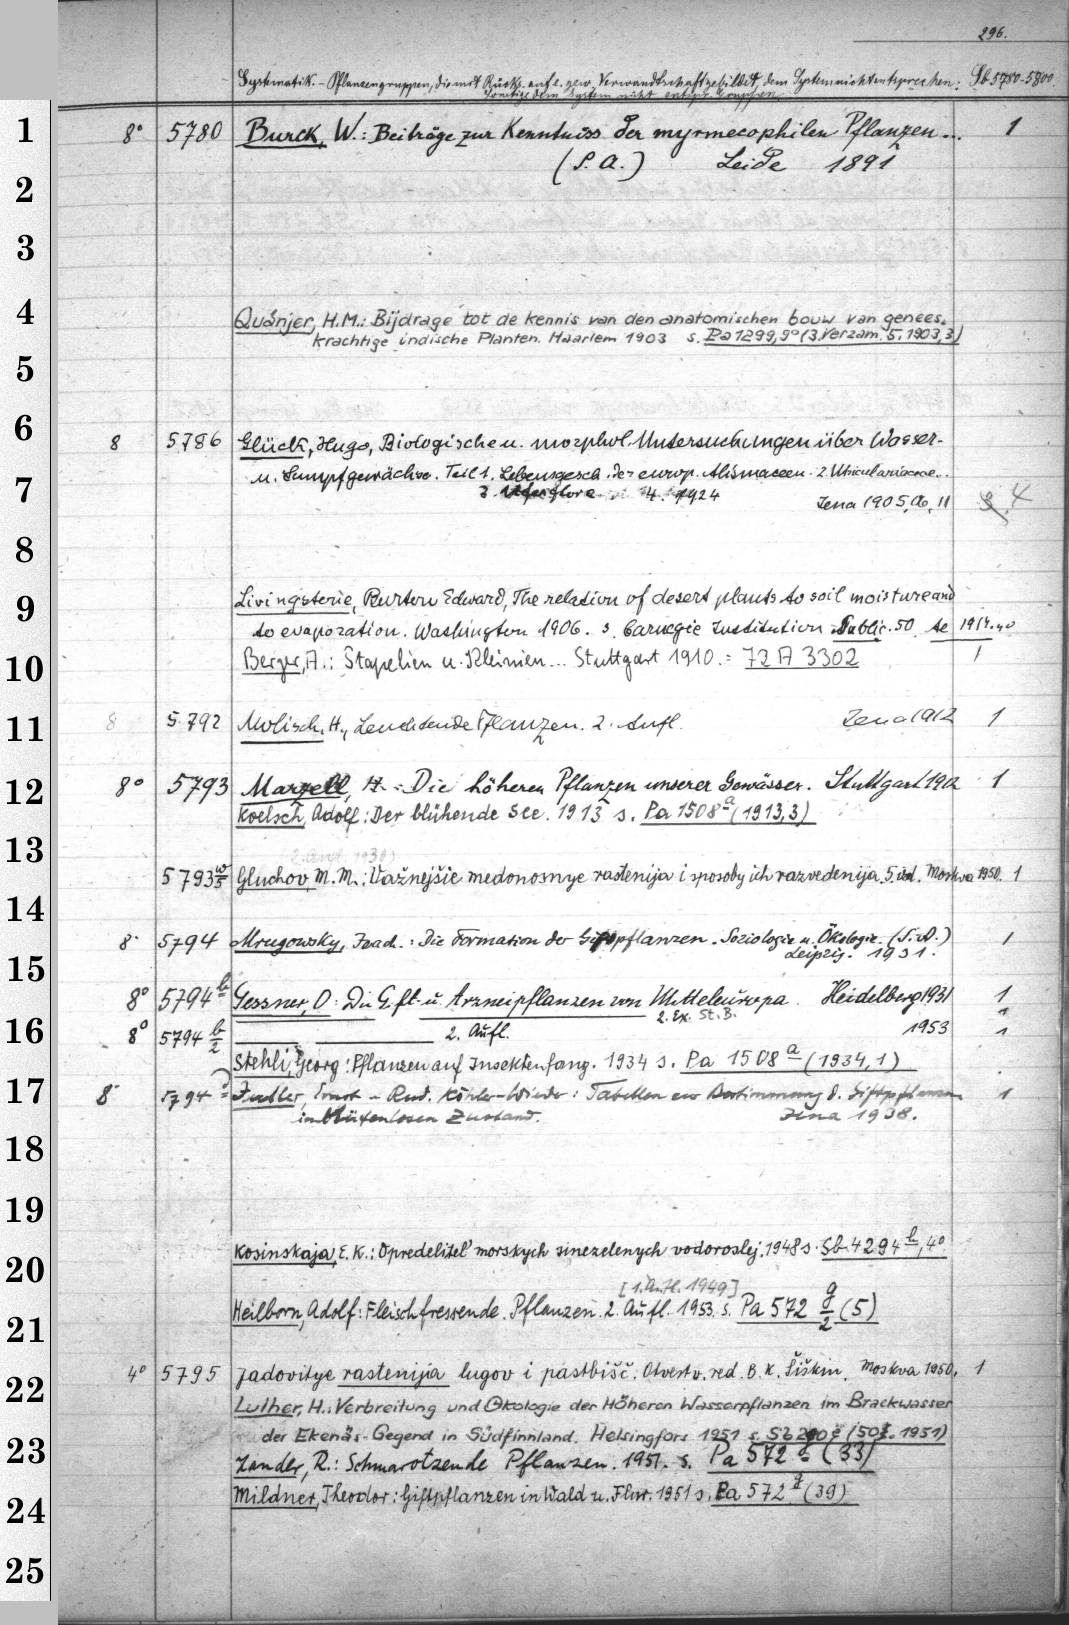 296.
Systematik. - Pflanzengruppen, die mit Rücks. auf s. gen. Verwandtschaft gebildet, dem System nicht entsprechen. Sb 5780-5800
Sonstige dem System nicht entspr. Gruppen
1 8° 5780 Burck, W.: Beiträge zur Kenntniss der myrmecophilen Pflanzen... 1
(S. A.) Leide 1891
2
3
4 Quanjer, H.M.: Bijdrage tot de kennis van den anatomischen bouw van genees-
krachtige indische Planten. Haarlem 1903 s. Pa 1299, 9° (3. Verzam. 5, 1903, 3)
5
6 8 5786 Glück, Hugo, Biologische u. morphol. Untersuchungen über Wasser-
u. Sumpfgewächse. Teil 1. Lebensgesch. der europ. Alismaceen. 2 Utriculariaceae..
7 3. Uferflora 4. 1924 Jena 1905, 06, 11 3, 4
8
9 Livingstone, Burton Edward, The relation of desert plants to soil moisture and
to evaporation. Washington 1906. s. Carnegie Institution Public. 50. Ae 1914.40
10 Berger, A.: Stapelien u. Kleinien... Stuttgart 1910. = 72 A 3302 1
11 8 5792 Molisch, H., Leuchtende Pflanzen. 2. Aufl. Jena 1912 1
12 8° 5793 Marzell, H.: Die höheren Pflanzen unserer Gewässer. Stuttgart 1912 1
Koelsch, Adolf: Der blühende See. 1913 s. Pa 1508 a (1913,3)
13 2. Aufl. 1930)
5793 w/5 Gluchov, M. M.: Važnejšie medonosnye rastenija i sposoby ich razvedenija. 5. izd. Moskva 1950. 1
14 8° 5794 Mrugowsky, Joach.: Die Formation der Giftpflanzen. Soziologie u. Ökologie. (S. A.) 1
15 Leipzig. 1931.
8° 5794 b Gessner, O: Die Gift- u. Arzneipflanzen von Mitteleuropa. Heidelberg 1931 1
2. Ex. St. B. 1
16 8° 5794 b/2 2. Aufl. 1953 1
Stehli, Georg: Pflanzen auf Insektenfang. 1934 s. Pa 1508 a (1934, 1)
17 8° 5794 Ernst - Rud. Köhler-Wieder: Tabellen zur Bestimmung d. Giftpflanzen 1
im blütenlosen Zustand. Jena 1938.
18
19
Kosinskaja, E. K.: Opredelitel' morskych sinezelenych vodoroslej. 1948 s. Sb 4294 h, 4°
20 [1. Aufl. 1949]
Heilborn, Adolf: Fleischfressende Pflanzen. 2. Aufl. 1953. s. Pa 572 g/2 (5)
21
22 4° 5795 Jadovitye rastenija lugov i pastbišč. Otvetv. red. B. K. Šiškin. Moskva 1950. 1
Luther, H.: Verbreitung und Ökologie der Höheren Wasserpflanzen im Brackwasser
der Ekenäs-Gegend in Südfinnland. Helsingfors 1951 s. Sb 200 e (50. 1951)
23 Zander, R.: Schmarotzende Pflanzen. 1951. s. Pa 572 g (33)
24 Mildner, Theodor: Giftpflanzen in Wald u. Flur. 1951 s. Pa 572 g (39)
25